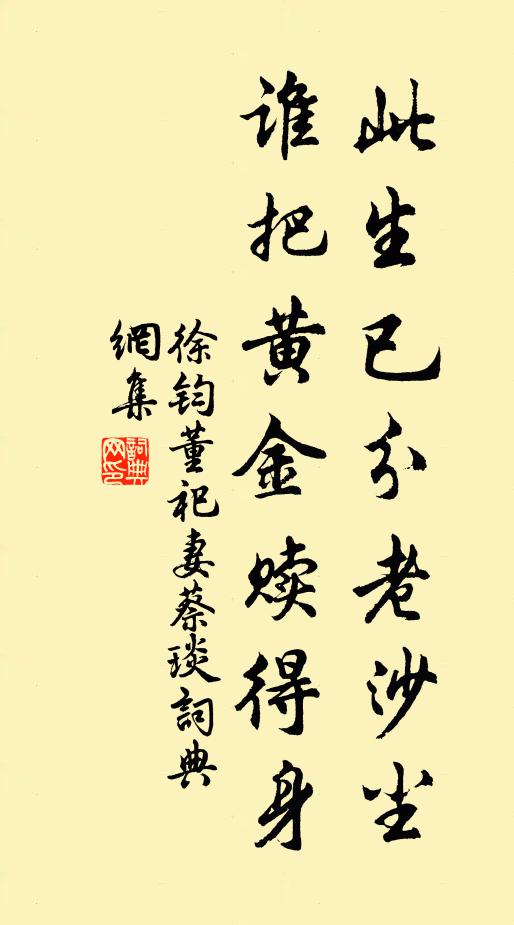 此生已分老沙尘
谁把黄金赎得身
徐钧董祀妻蔡琰詞典
網集
詞典
网印